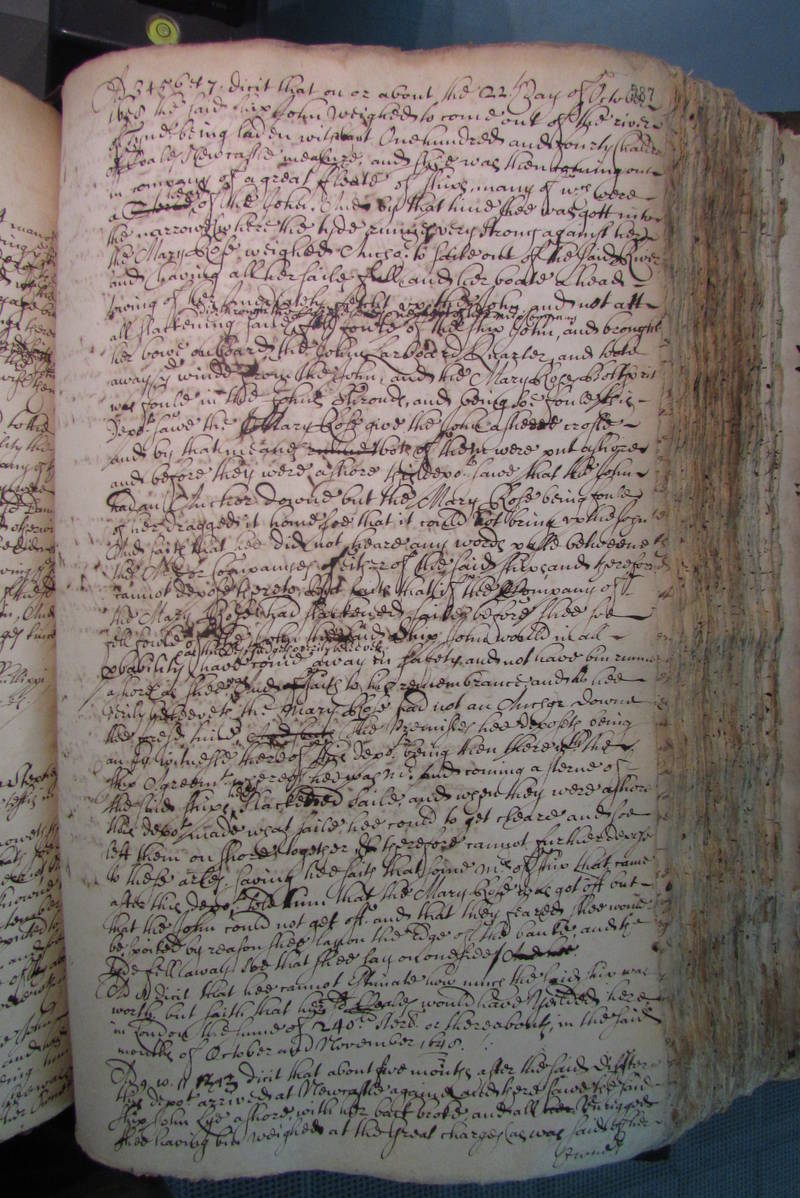 387
3 4 5 6 et 7. dicit that on or about the 22th Day of October
1648 the said ship John weighed to come out of the river
of Tyne being laden with about One hundred and fourty
of Coale Newcastle measure, and shee was then coming out
in company of a great fleete of Ships, many of wch were
a head of the John. And by that time shee was gott into
the narrowes where the tyde runnes very strong against her
the Mary Rose weighed Anchor to saile out of the said River
and having all her sailes full and her boate a head
towing of her and not att
all slackening saile fell foule of the ship John, and brought
her bowe on board the Johns Larboard Quarter, and tooke
away ye winde from the John, and the Mary Roses Boltsprit
was foule in the Johns Shrouds, and being soe foule this
depot sawe the Mary Rose give the John a sheere crosse
and by that meanes both of them were put ashore
and before they were ashore this depot sawe that the John
had an Ancker downe but the Mary Rose being foule
of her dragged it home soe that it could not bring up the ship
And saith that hee did not heare any words passe betweene
the Mr or Companyes of either of the said ships and therefore
cannot depose thereto, but saith that if the Company of
the Mary Rose had slackened sailes before shee soe
fell foule of the John the said ship John would in all
probability have come away in safety, and not have bin runne
ashore as shee was and saith to his remembrance and as hee
verily beleeveth the Mary Rose had not an Anchor downe
the Premisses hee deposeth being
an eye witnesse thereof this depot being then there wth the
ship whereof hee was Mr and coming a sterne of
the said ships slackened sailes and when they were ashore
this depot made what saile hee could to get cleare and soe
left them on shore together And therefore cannot further depose
to these arles. saving hee saith that some Mrs of ships that came
after this depot told him that the Mary Rose was got off but
that the John could not get off. and that they feared shee would
be spoiled by reason shee lay on the Edge of the banke, and the
tyde fell away soe that shee lay on one side
dicit that hee cannot Estimate how much the said ship was
worth, but saith that her Coales would have yeilded here
in London the summe of 240 li sterl. or thereabouts, in the said
months of October and November 1648.
dicit that about five months after the said
this depot arrived at Newcastle againe and there sawe the said
ship John lye ashore with her back broke and all unrigged
shee having bin weighed at the great charges (as was said) of her
Owners